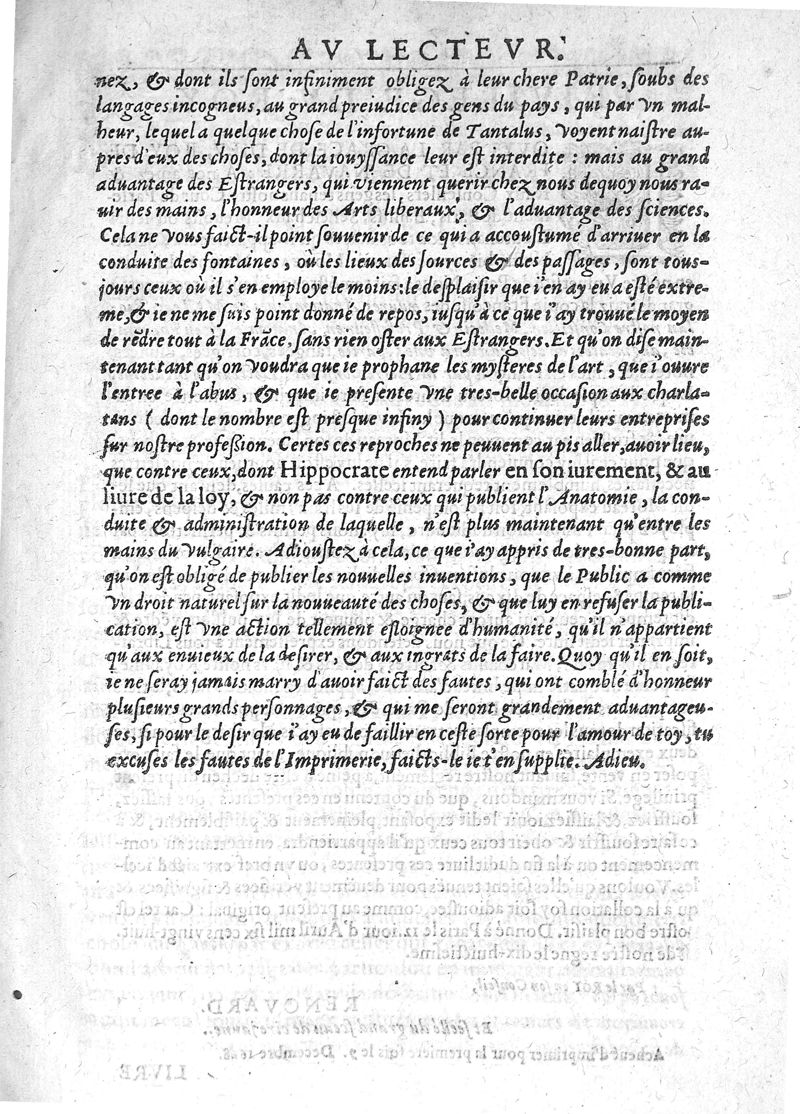 AV LECTEVR.
nez, & dont ils sont infiniment obligez à leur chere Patrie, soubs des
langages incogneus, au grand preiudice des gens du pays, qui par vn mal-
heur, lequel a quelque chose de l'infortune de Tantalus, voyent naistre au-
pres d'eux des choses, dont la iouyssance leur est interdite : mais au grand
aduantage des Estrangers, qui viennent querir chez nous dequoy nous ra-
uir des mains, l'honneur des Arts liberaux, & l'aduantage des sciences.
Cela ne vous faict-il point souuenir de ce qui a accoustumé d'arriuer en la
conduite des fontaines, où les lieux des sources & des passages, sont tous-
jours ceux où il s'en employe le moins: le desplaisir que i'en ay eu a esté extre-
me, & ie ne me suis point donné de repos, iusqu'à ce que i'ay trouué le moyen
de rẽdre tout à la Frãce, sans rien oster aux Estrangers. Et qu'on dise main-
tenant tant qu'on voudra que ie prophane les mysteres de l'art, que i'ouure
l'entree à l'abus, & que ie presente vne tres-belle occasion aux charla-
tans ( dont le nombre est presque infiny ) pour continuer leurs entreprises
sur nostre profession. Certes ces reproches ne peuuent au pis aller, auoir lieu,
que contre ceux, dont Hippocrate entend parler en son iurement, & au
liure de la loy, & non pas contre ceux qui publient l'Anatomie, la con-
duite & administration de laquelle, n'est plus maintenant qu'entre les
mains du vulgaire. Adioustez à cela, ce que i'ay appris de tres-bonne part,
qu'on est obligé de publier les nouuelles inuentions, que le Public a comme
vn droit naturel sur la nouueauté des choses, & que luy en refuser la publi-
cation, est vne action tellement esloignee d'humanité, qu'il n'appartient
qu'aux enuieux de la desirer, & aux ingrats de la faire. Quoy qu'il en soit,
ie ne seray jamais marry d'auoir faict des fautes, qui ont comblé d'honneur
plusieurs grands personnages, & qui me seront grandement aduantageu-
ses, si pour le desir que i'ay eu de faillir en ceste sorte pour l'amour de toy, tu
excuses les fautes de l'Imprimerie, faicts-le ie t'en supplie. Adieu.